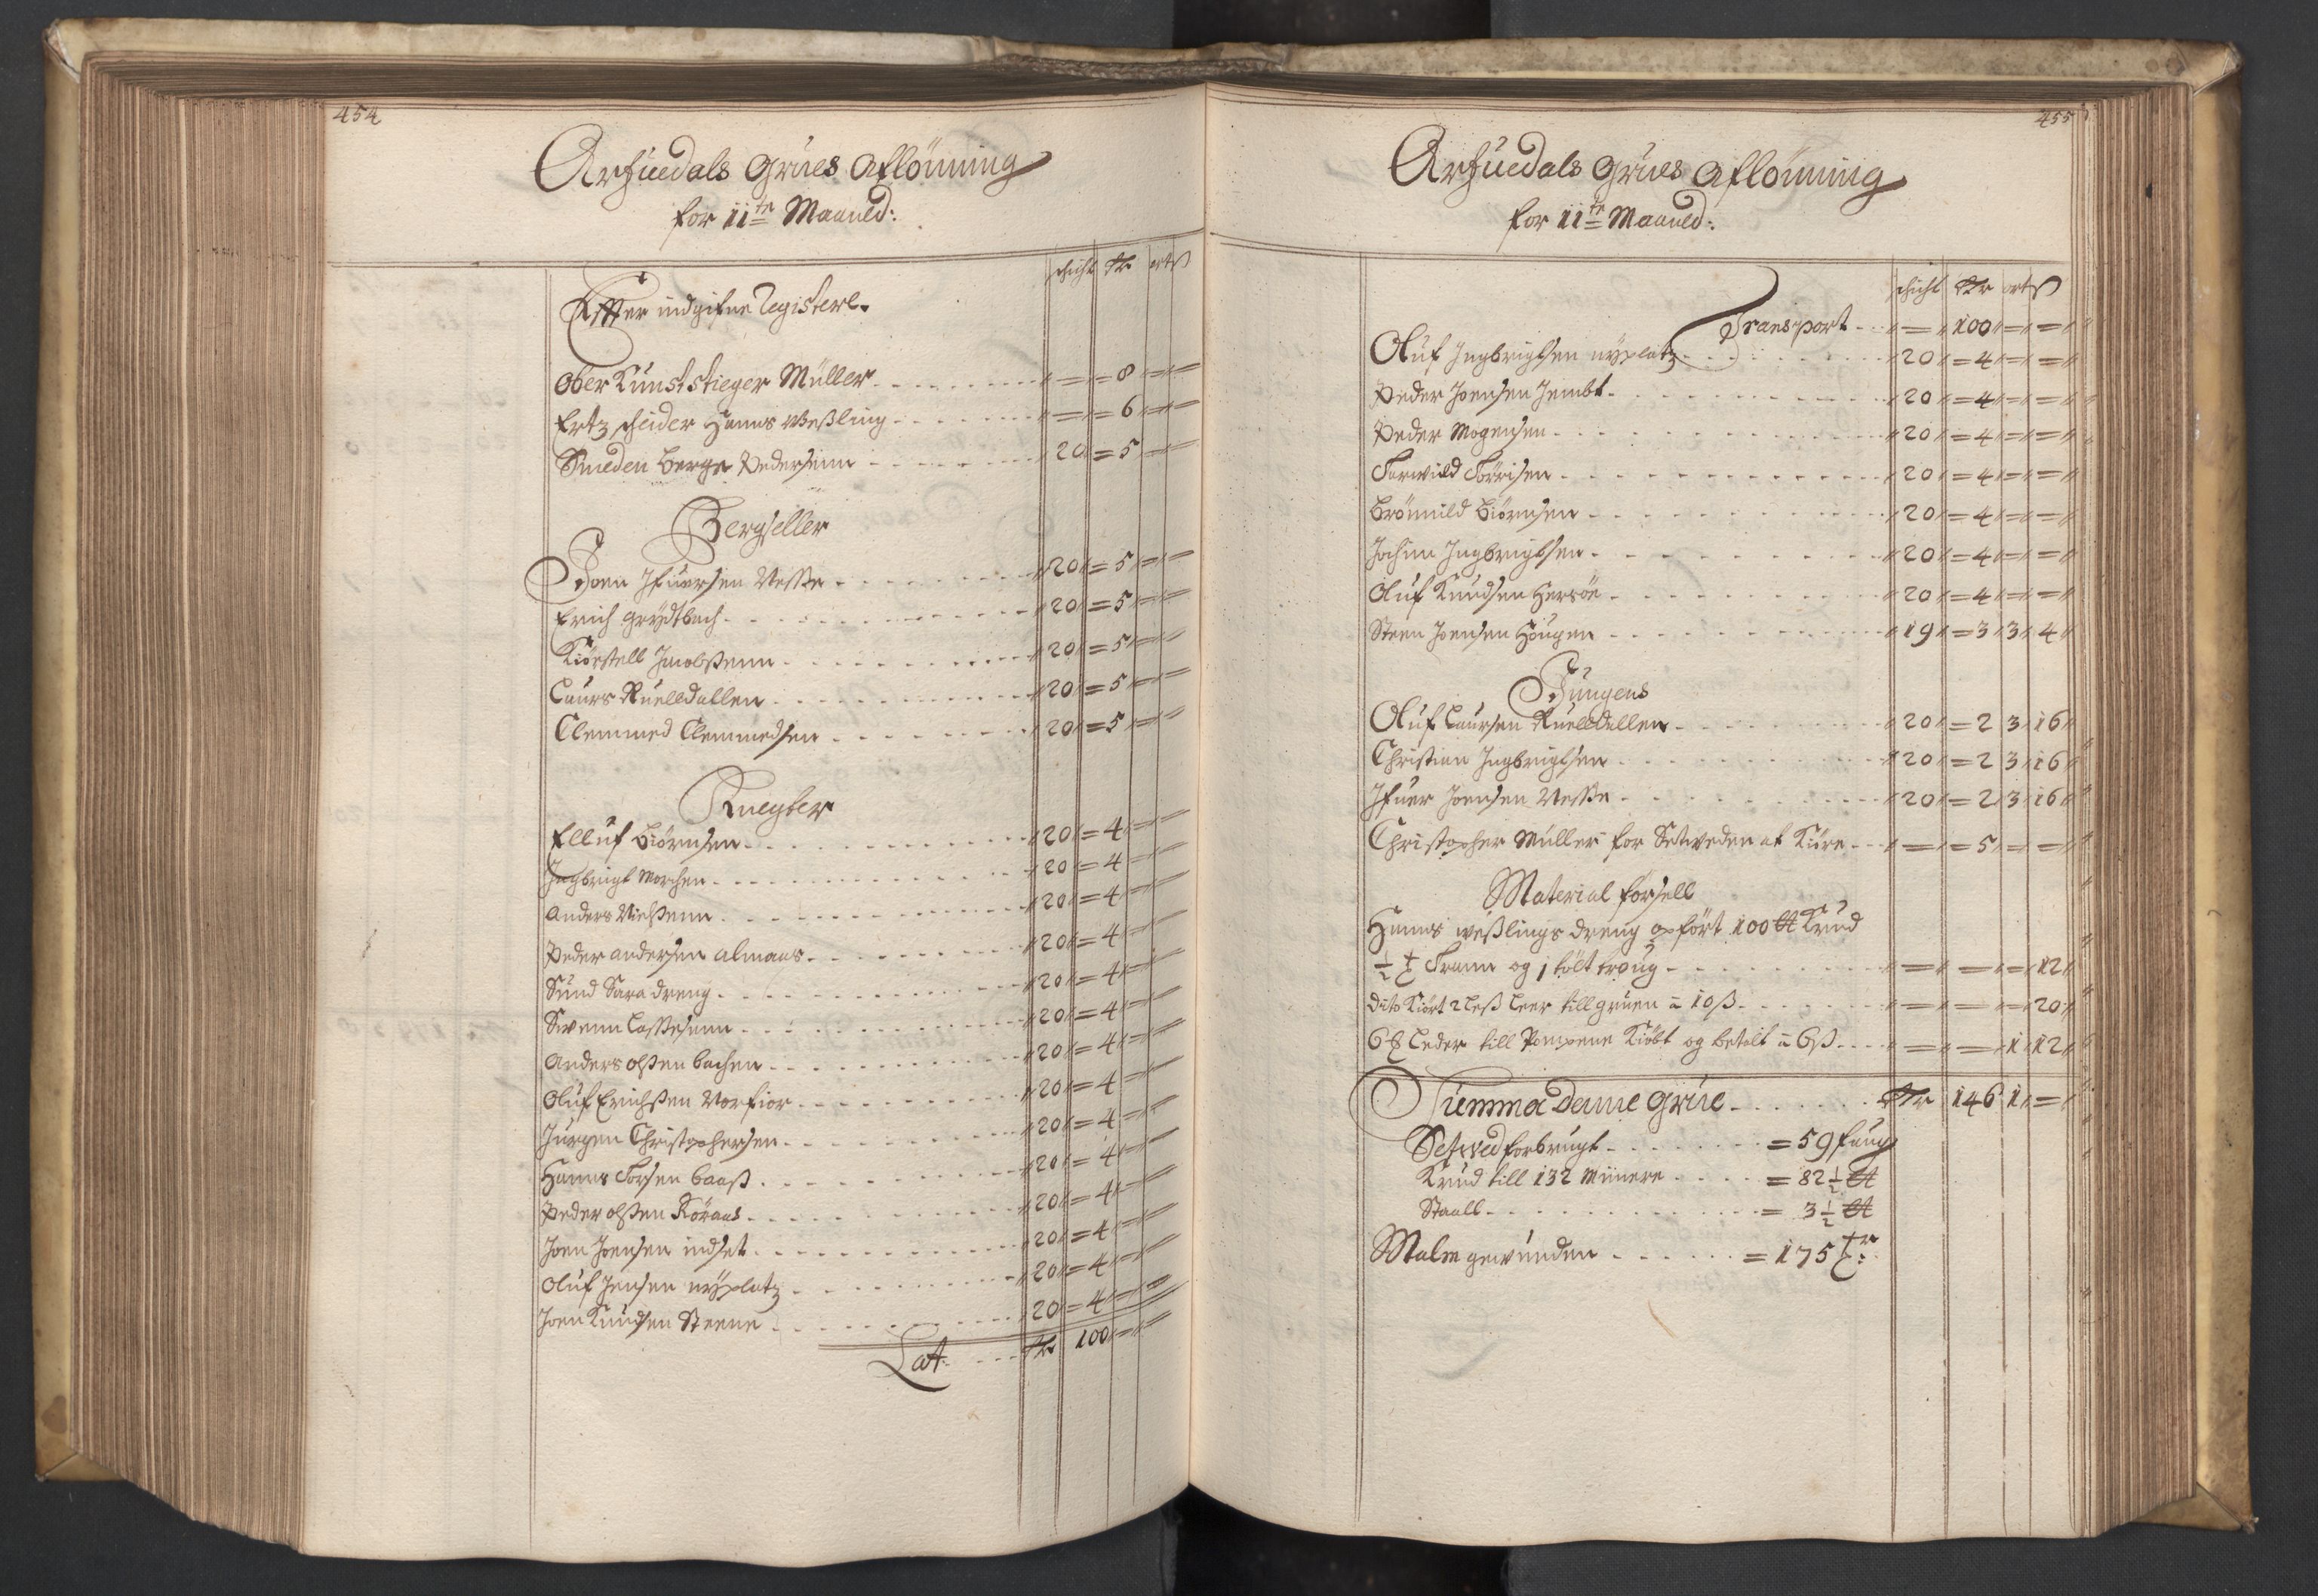 454
Arfuedals Grues Aflönning
for 11te Maaned:
schicht Rr ort ß
Effter indgifne Registere.
Ober Kunst stieger Müller - - - = = 8 = =
Ertz scheider Hanns Weßling - - - = = 6 = =
Smeden Berge Pedersenn - - - 20 = 5 = =
Bergseller
Joen Ifuersen Vesse - - - 20 = 5 = =
Erich Grydtbach - - - 20 = 5 = =
Kiörstell Jacobßenn - - - 20 = 5 = =
Laurs Ruelldallen - - - 20 = 5 = =
Clemmed Clemmedsen - - - 20 = 5 = =
Knegter
Elluf Biörnsen - - - 20 = 4 = =
Ingbrigt Morchen - - - 20 = 4 = =
Anders Nielßenn - - - 20 = 4 = =
Peder andersen almaas - - - 20 = 4 = =
Sund Sara dreng - - - 20 = 4 = =
Swenn Lassesenn - - - 20 = 4 = =
Anders olßen bachen - - - 20 = 4 = =
Oluf Erichßen Vorfior - - - 20 = 4 = =
Jürgen Christophersen - - - 20 = 4 = =
Hanns Torsen baaß - - - 20 = 4 = =
Peder olßen Röraas - - - 20 = 4 = =
Joen Joensen indset - - - 20 = 4 = =
Oluf Jensen nÿplatz - - - 20 = 4 = =
Joen Knudsen Steene - - - 20 = 4 = =
Lat. - - - Rr 100 = =
455
Arfuedals Grues Aflönning
for 11te Maaned:
schicht Rr ort ß
Transport - - = 100 = =
Oluf Ingbrigtsen nÿplatz - - - 20 = 4 = =
Peder Joensen Jembt - - - 20 = 4 = =
Peder Mogensen - - - 20 = 4 = =
Torwild Törrisen - - - 20 = 4 = =
Brönnild Biörnsen - - - 20 = 4 = =
Jochim Ingbrigtsen - - - 20 = 4 = =
Oluf Knudsen Hersöe - - - 20 = 4 = =
Steen Joensen Hougen - - - 19 = 3 3 4
Jungens
Oluf Laursen Ruelldallen - - - 20 = 2 3 16
Christian Ingbrigtsen - - - 20 = 2 3 16
Ifuer Joensen Vesse - - - 20 = 2 3 16
Christopher Müller for Setweden at Kiöre - - = = 5 = =
Material forsell
Hanns weßlings dreng opfört 100 ℔ Krud
½ t Trann og 1 tölt troug - - - = = = 12
dito Kiört 2 leß leer till gruen à 10 ß - - - = = = 20
6 ℔ Leder till Pompene Kiöbt og betalt à 6 ß - - - = = 1 12
Summa denne Grue - - - Rr 146 1 =
Setved forbrugt - - - = 59 faug
Krud till 132 Minere - - - = 82 ½ ℔
Staall - - - = 3 ½ ℔
Malm gewunden - - - = 175 tr: